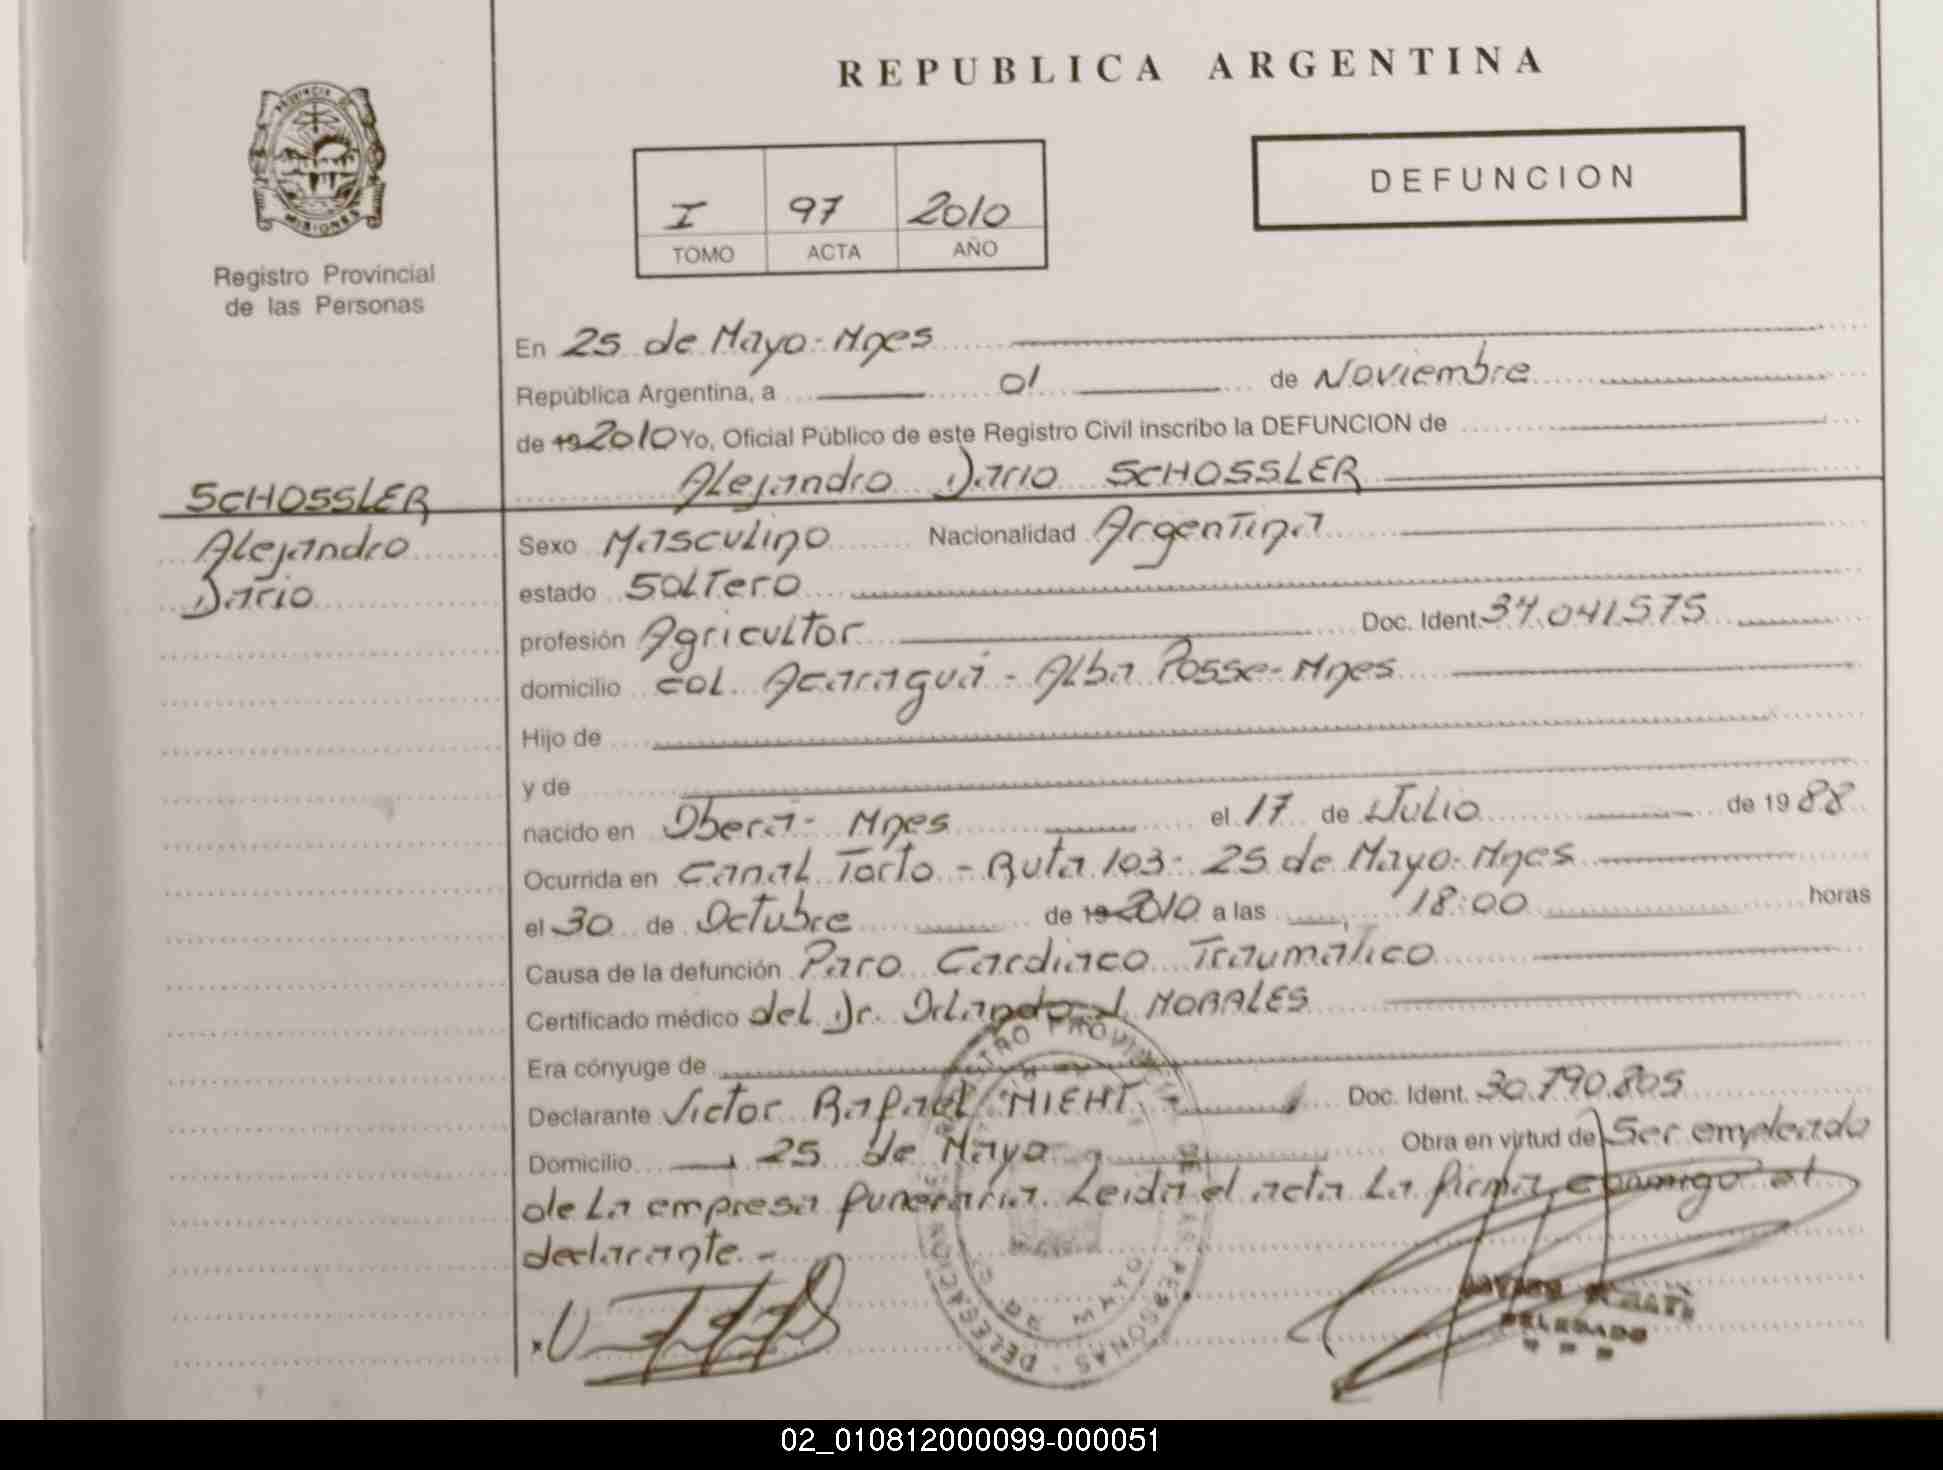 REPUBLICA ARGENTINA
PROVINCIA DE
MISIONES
Registro Provincial
de las Personas
DEFUNCION
I 97 2010
TOMO ACTA AÑO
En 25 de Mayo-Mnes
República Argentina, a 01 de Noviembre
de 19 2010 Yo, Oficial Público de este Registro Civil inscribo la DEFUNCION de
Alejandro Dario SCHOSSLER
SCHOSSLER
Alejandro
Dario
Sexo Masculino Nacionalidad Argentina
estado Soltero
profesión Agricultor Doc. Ident. 34.041.575
domicilio Col. Acaraguá - Alba Posse-Mnes
Hijo de
y de
nacido en Oberá- Mnes el 17 de Julio de 19 88
Ocurrida en Canal Torto - Ruta 103- 25 de Mayo-Mnes
el 30 de Octubre de 19 2010 a las 18:00 horas
Causa de la defunción Paro Cardiaco Traumatico
Certificado médico del Dr. Orlando J. MORALES
Era cónyuge de
Declarante Victor Rafael MIEHT.- Doc. Ident. 30.790.805
Domicilio 25 de Mayo Obra en virtud de Ser empleado
de La empresa funeraria. Leida el acta La firma conmigo el
declarante.-
REGISTRO PROVINCIAL DE LAS PERSONAS
DELEGACION
25 DE MAYO
DELEGADO
02_010812000099-000051